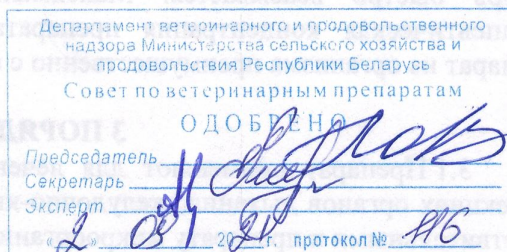 Департамент ветеринарного и продовольственного
надзора Министерства сельского хозяйства и
продовольствия Республики Беларусь
Совет по ветеринарным препаратам
ОДОБРЕНО
Председатель
Секретарь
Эксперт
«2» 20 г. протокол № 116
3 ПОРЯД